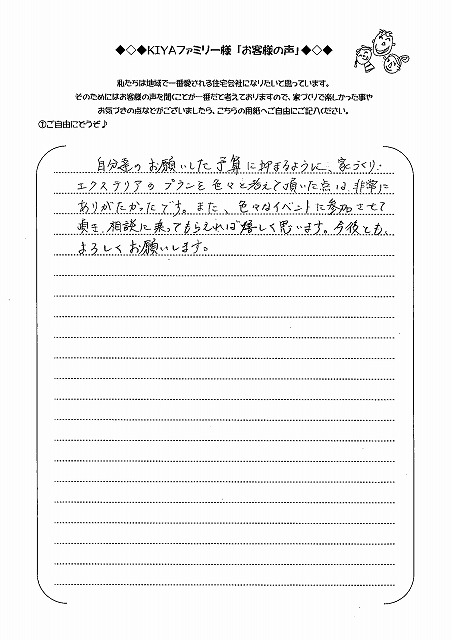 ◆◇◆KIYAファミリー様「お客様の声」◆◇◆
私たちは地域で一番愛される住宅会社になりたいと思っています。
そのためにはお客様の声を聞くことが一番だと考えておりますので、家づくりで楽しかった事や
お気づきの点などがございましたら、こちらの用紙へご自由にご記入ください。
①ご自由にどうぞ♪
自分達のお願いした予算に抑まるように、家づくり・
エクステリアのプランを色々と考えて頂いた点は非常に
ありがたかったです。また、色々なイベントに参加させて
頂き、相談に乗ってもらえれば嬉しく思います。今後とも、
よろしくお願いします。